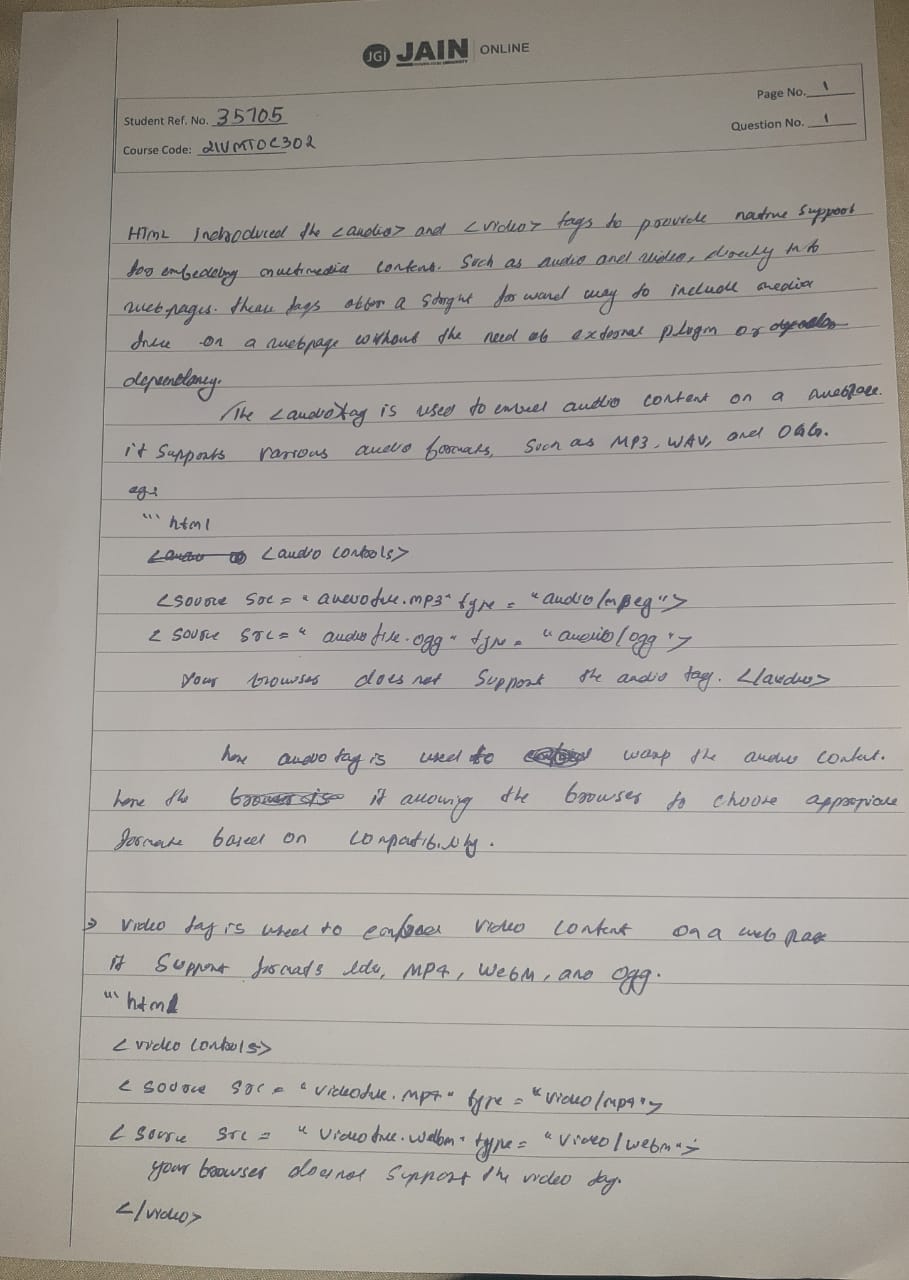 JGI JAIN ONLINE
Page No. 1
Student Ref. No. 35705
Question No. 1
Course Code: 21VMTOC302
HTML Introduced the <audio> and <video> tags to provide native support
for embedding multimedia content. Such as audio and video, directly into
webpages. these tags offer a straight forward way to include media
on a webpage without the need of external plugin or
dependancy.
The <audio> tag is used to embed audio content on a webpage.
it supports various audio formats, Such as MP3, WAV, and OGG.
eg:
``` html
<audio controls>
<source src = "audiofile.mp3" type = "audio/mpeg">
<source src = "audiofile.ogg" type = "audio/ogg">
Your browser does not support the audio tag. </audio>
here audio tag is used to warp the audio content.
here the it allowing the browser to choose appropriate
formate based on compatibility.
> Video tag is used to video content on a web page
it support formats like, MP4, WebM, and Ogg.
``` html
<video controls>
<source src = "videofile.mp4" type = "video/mp4">
<source src = "videofile.webm" type = "video/webm">
your browser doesnot support the video tag.
</video>